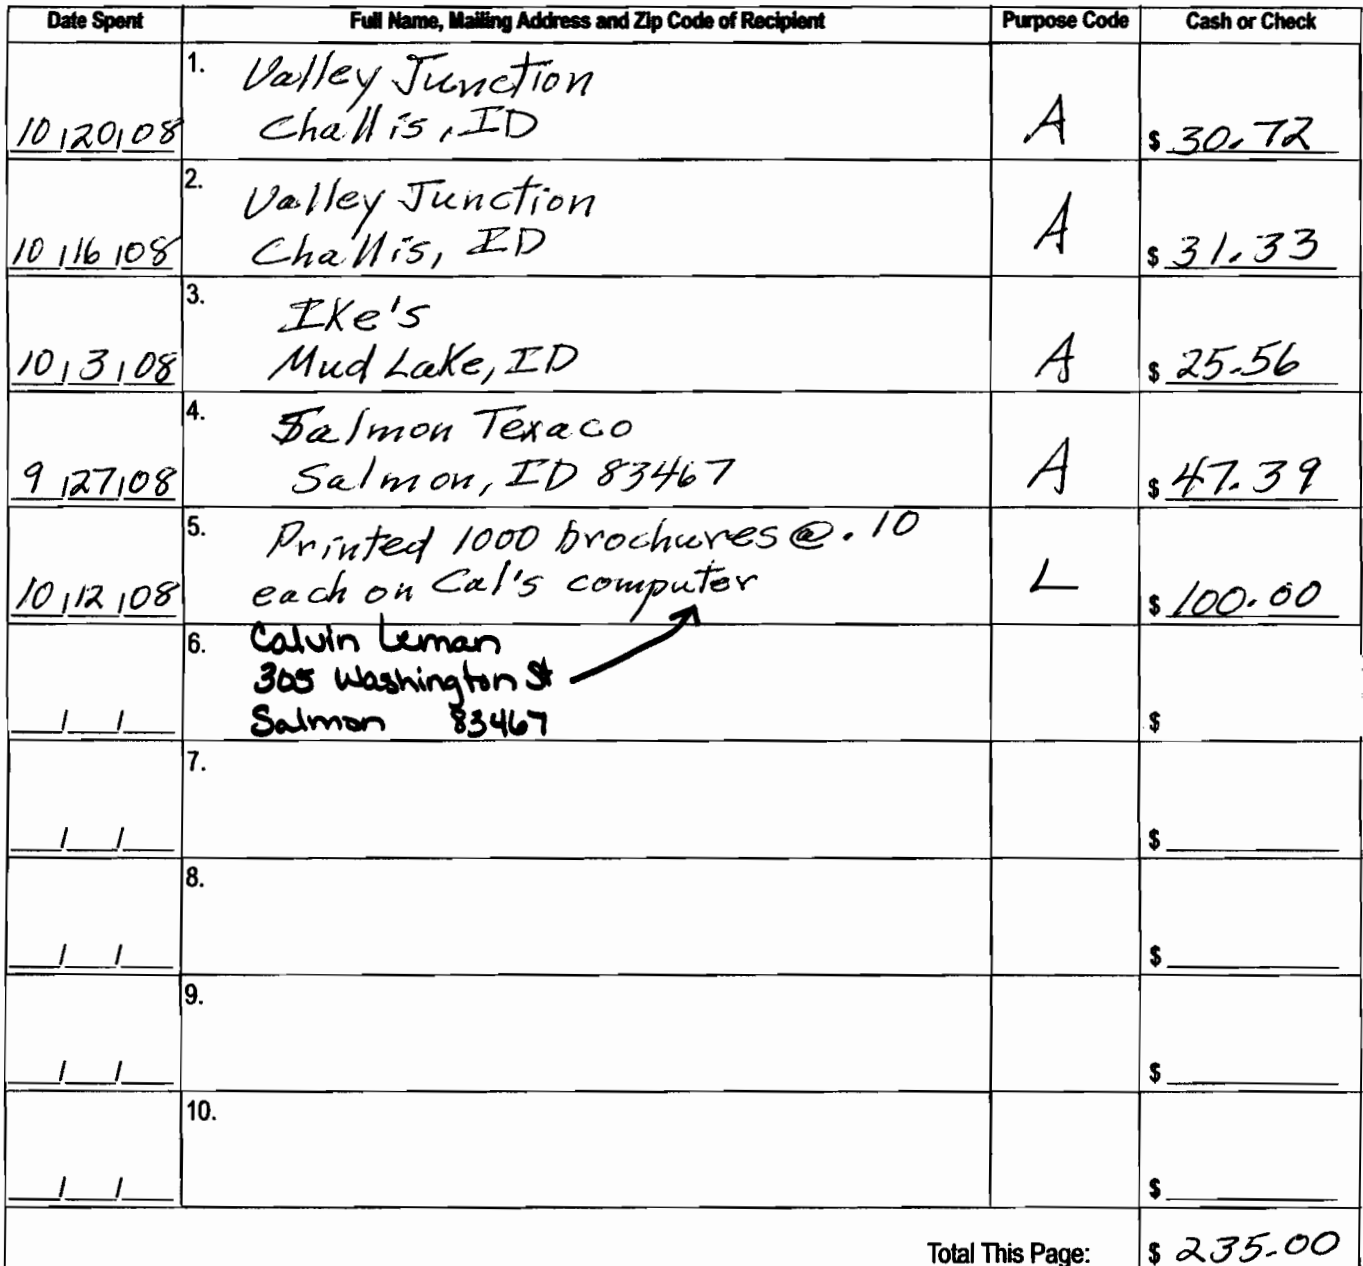 Date Spent Full Name, Mailing Address and Zip Code of Recipient Purpose Code Cash or Check
1. Valley Junction
10/20/08 Challis, ID A $ 30.72
2. Valley Junction
10/16/08 Challis, ID A $ 31.33
3. Ike's
10/3/08 Mud Lake, ID A $ 25.56
4. Salmon Texaco
9/27/08 Salmon, ID 83467 A $ 47.39
5. Printed 1000 brochures @ .10
10/12/08 each on Cal's computer L $ 100.00
6. Calvin Leman
305 Washington St
__/__/__ Salmon 83467 $
7.
__/__/__ $
8.
__/__/__ $
9.
__/__/__ $
10.
__/__/__ $
Total This Page: $ 235.00